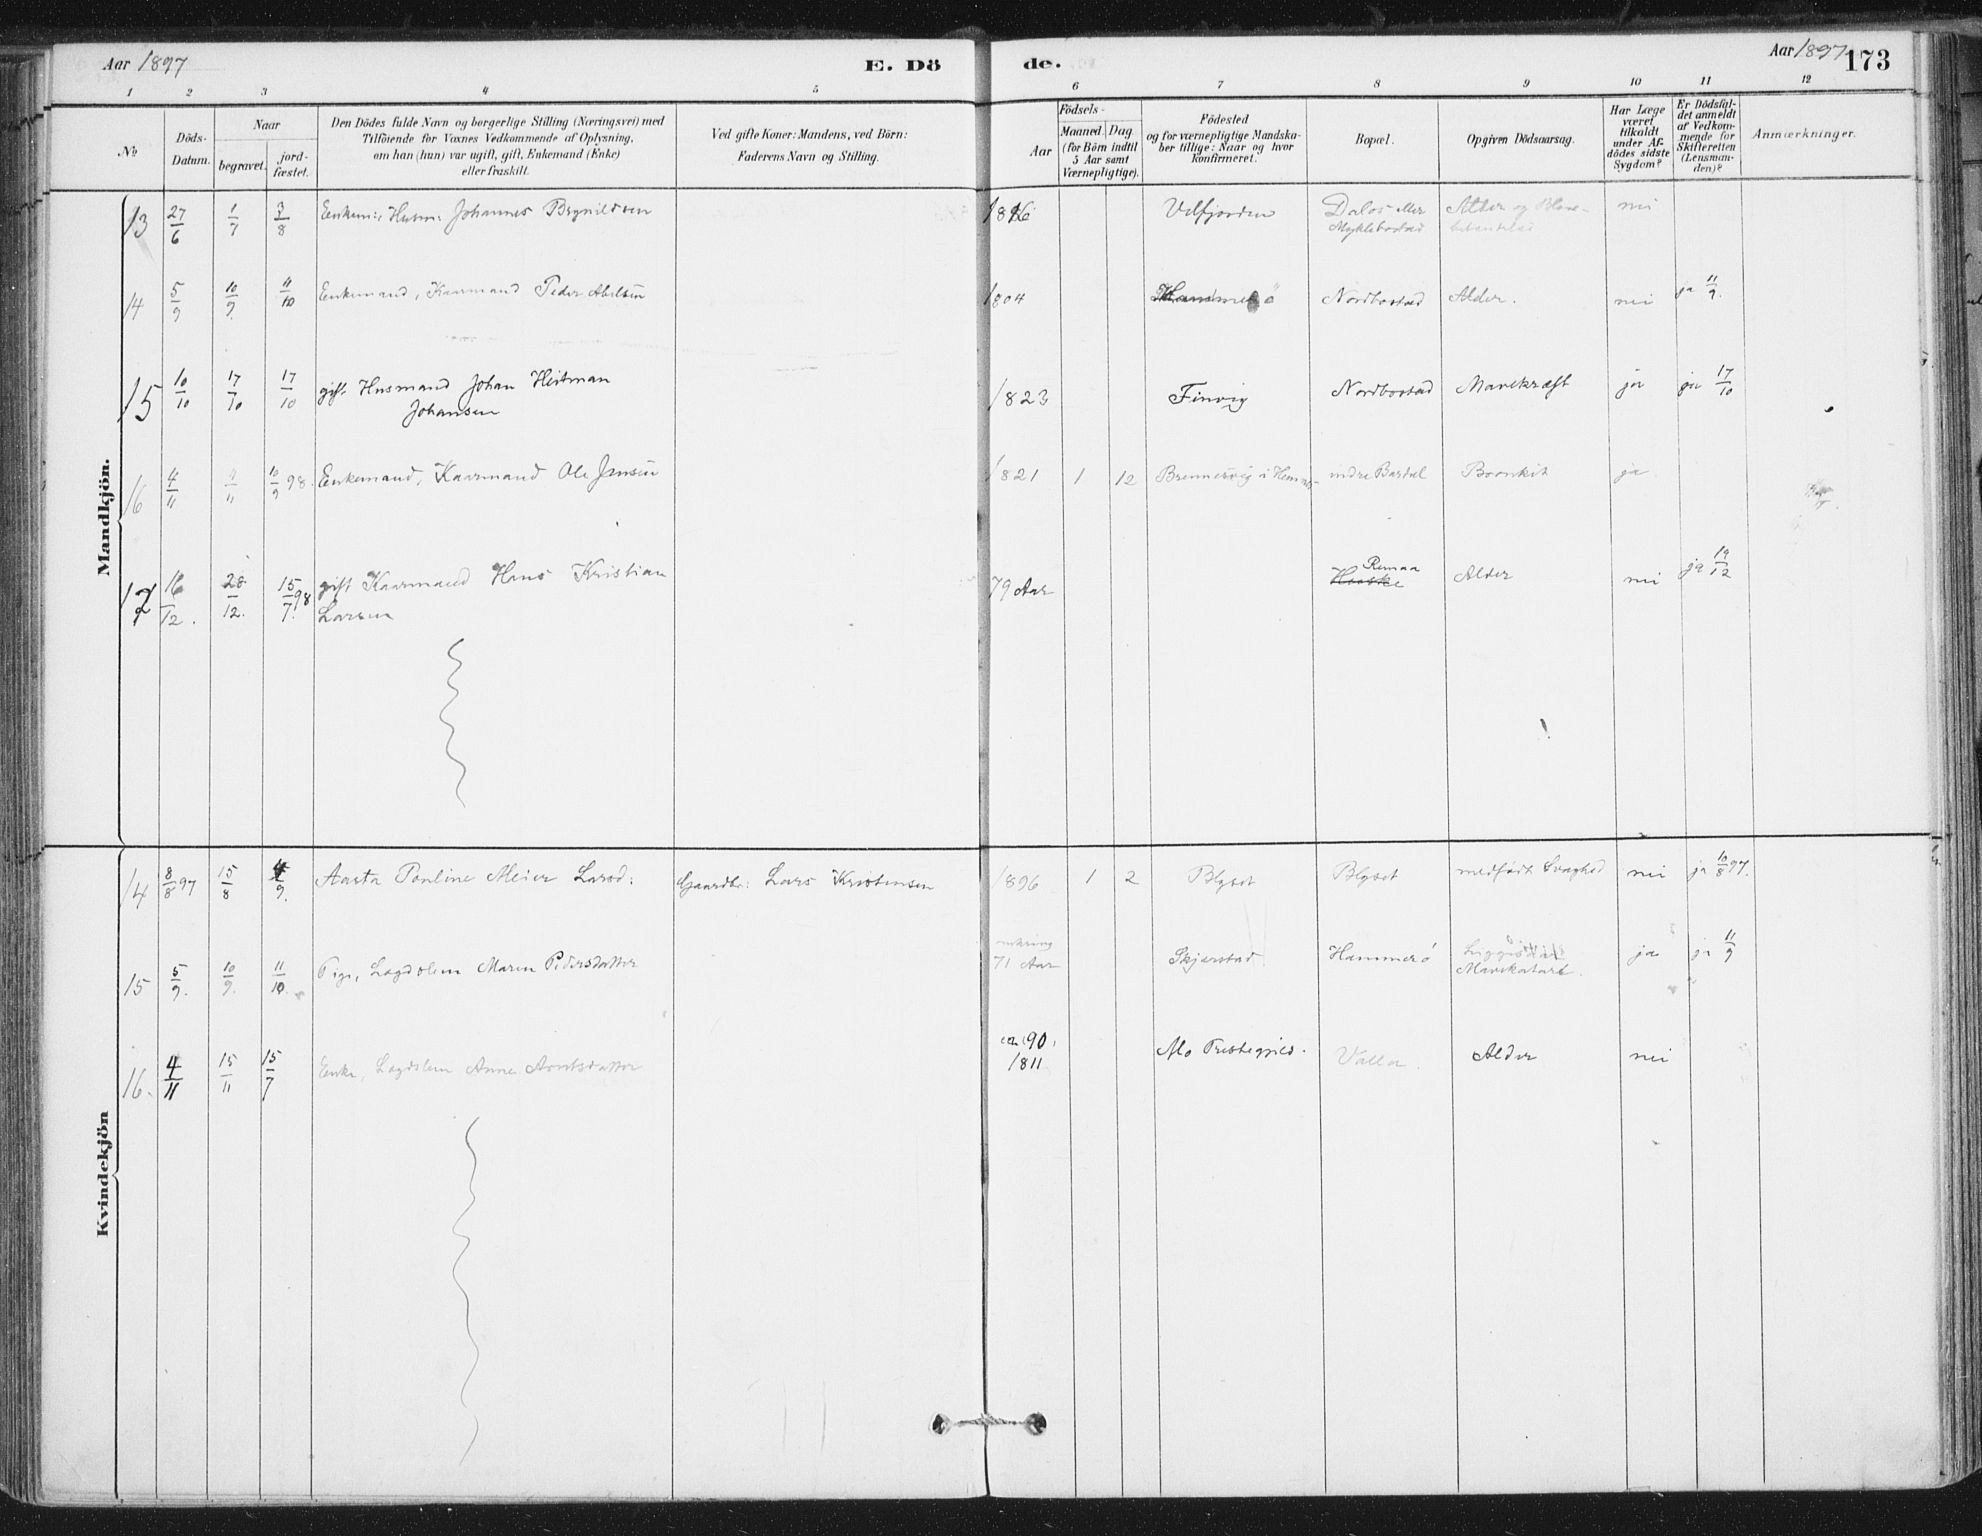 Aar 1897 E. Dö de. Aar 1897 173
1 2 3 4 5 6 7 8 9 10 11 12
No
Döds-
Datum.
Naar
begravet.
jord-
fæstet.
Den Dödes fulde Navn og borgerlige Stilling (Næringsvei) med
Tilföiende for Voxnes Vedkommende af Oplysning,
om han (hun) var ugift, gift, Enkemand (Enke)
eller fraskilt.
Ved gifte Koner: Mandens, ved Börn:
Faderens Navn og Stilling.
Födsels-
Aar
Maaned. Dag
(for Börn indtil
5 Aar samt
Værnepligtige).
Födested
og for værnepligtige Mandska-
ber tillige: Naar og hvor
konfirmeret.
Bopæl.
Opgiven Dödsaarsag.
Har Læge
været
tilkaldt
under Af-
dödes sidste
Sygdom?
Er Dödsfal-
det anmeldt
af Vedkom-
mende for
Skifteretten
(Lensman-
den)?
Anmærkninger.
Mandkjön.
13 27/6 1/7 3/8 Enkem: Husm: Johannes Brynildsen Velfjorden Dalos eller Alder og nei
Myklebostad
14 5/9 10/9. 11/10 Enkemand, Kaarmand Peder Abelsen 1804 Nordbostad Alder. nei ja 11/9.
15 10/10 17/10 17/10 gift Husmand Johan Heitman 1823 Finvig Nordbostad Mavekræft ja ja 17/10
Johansen
16 4/11 9/11 10/9 98. Enkemand, Kaarmand Ole Jensen 1821 1 12 indre ja
17 16/12. 28/12. 15/7. 98 gift Kaarmand Hans Kristian 79 Aar Remaa Alder nei ja 19/12
Larsen
Kvindekjön
14 8/8 97 15/8 4/9. Aasta Pauline Meier Larsd: Gaardbr: Lars Kristensen 1896 1 2 Blyset Blyset medfödt Svaghed nei ja 10/8 97.
15 5/9. 10/9. 11/10. Pige, Lægdslem Maren Pedersdatter omkring
71 Aar Skjerstad Hammerö ja ja 11/9
Mavekatarr.
16. 4/11 15/11 15/7 Enke, Lægdslem Anne Arntsdatter 90,
1811 Mo Prestegjeld. Valla. Alder nei